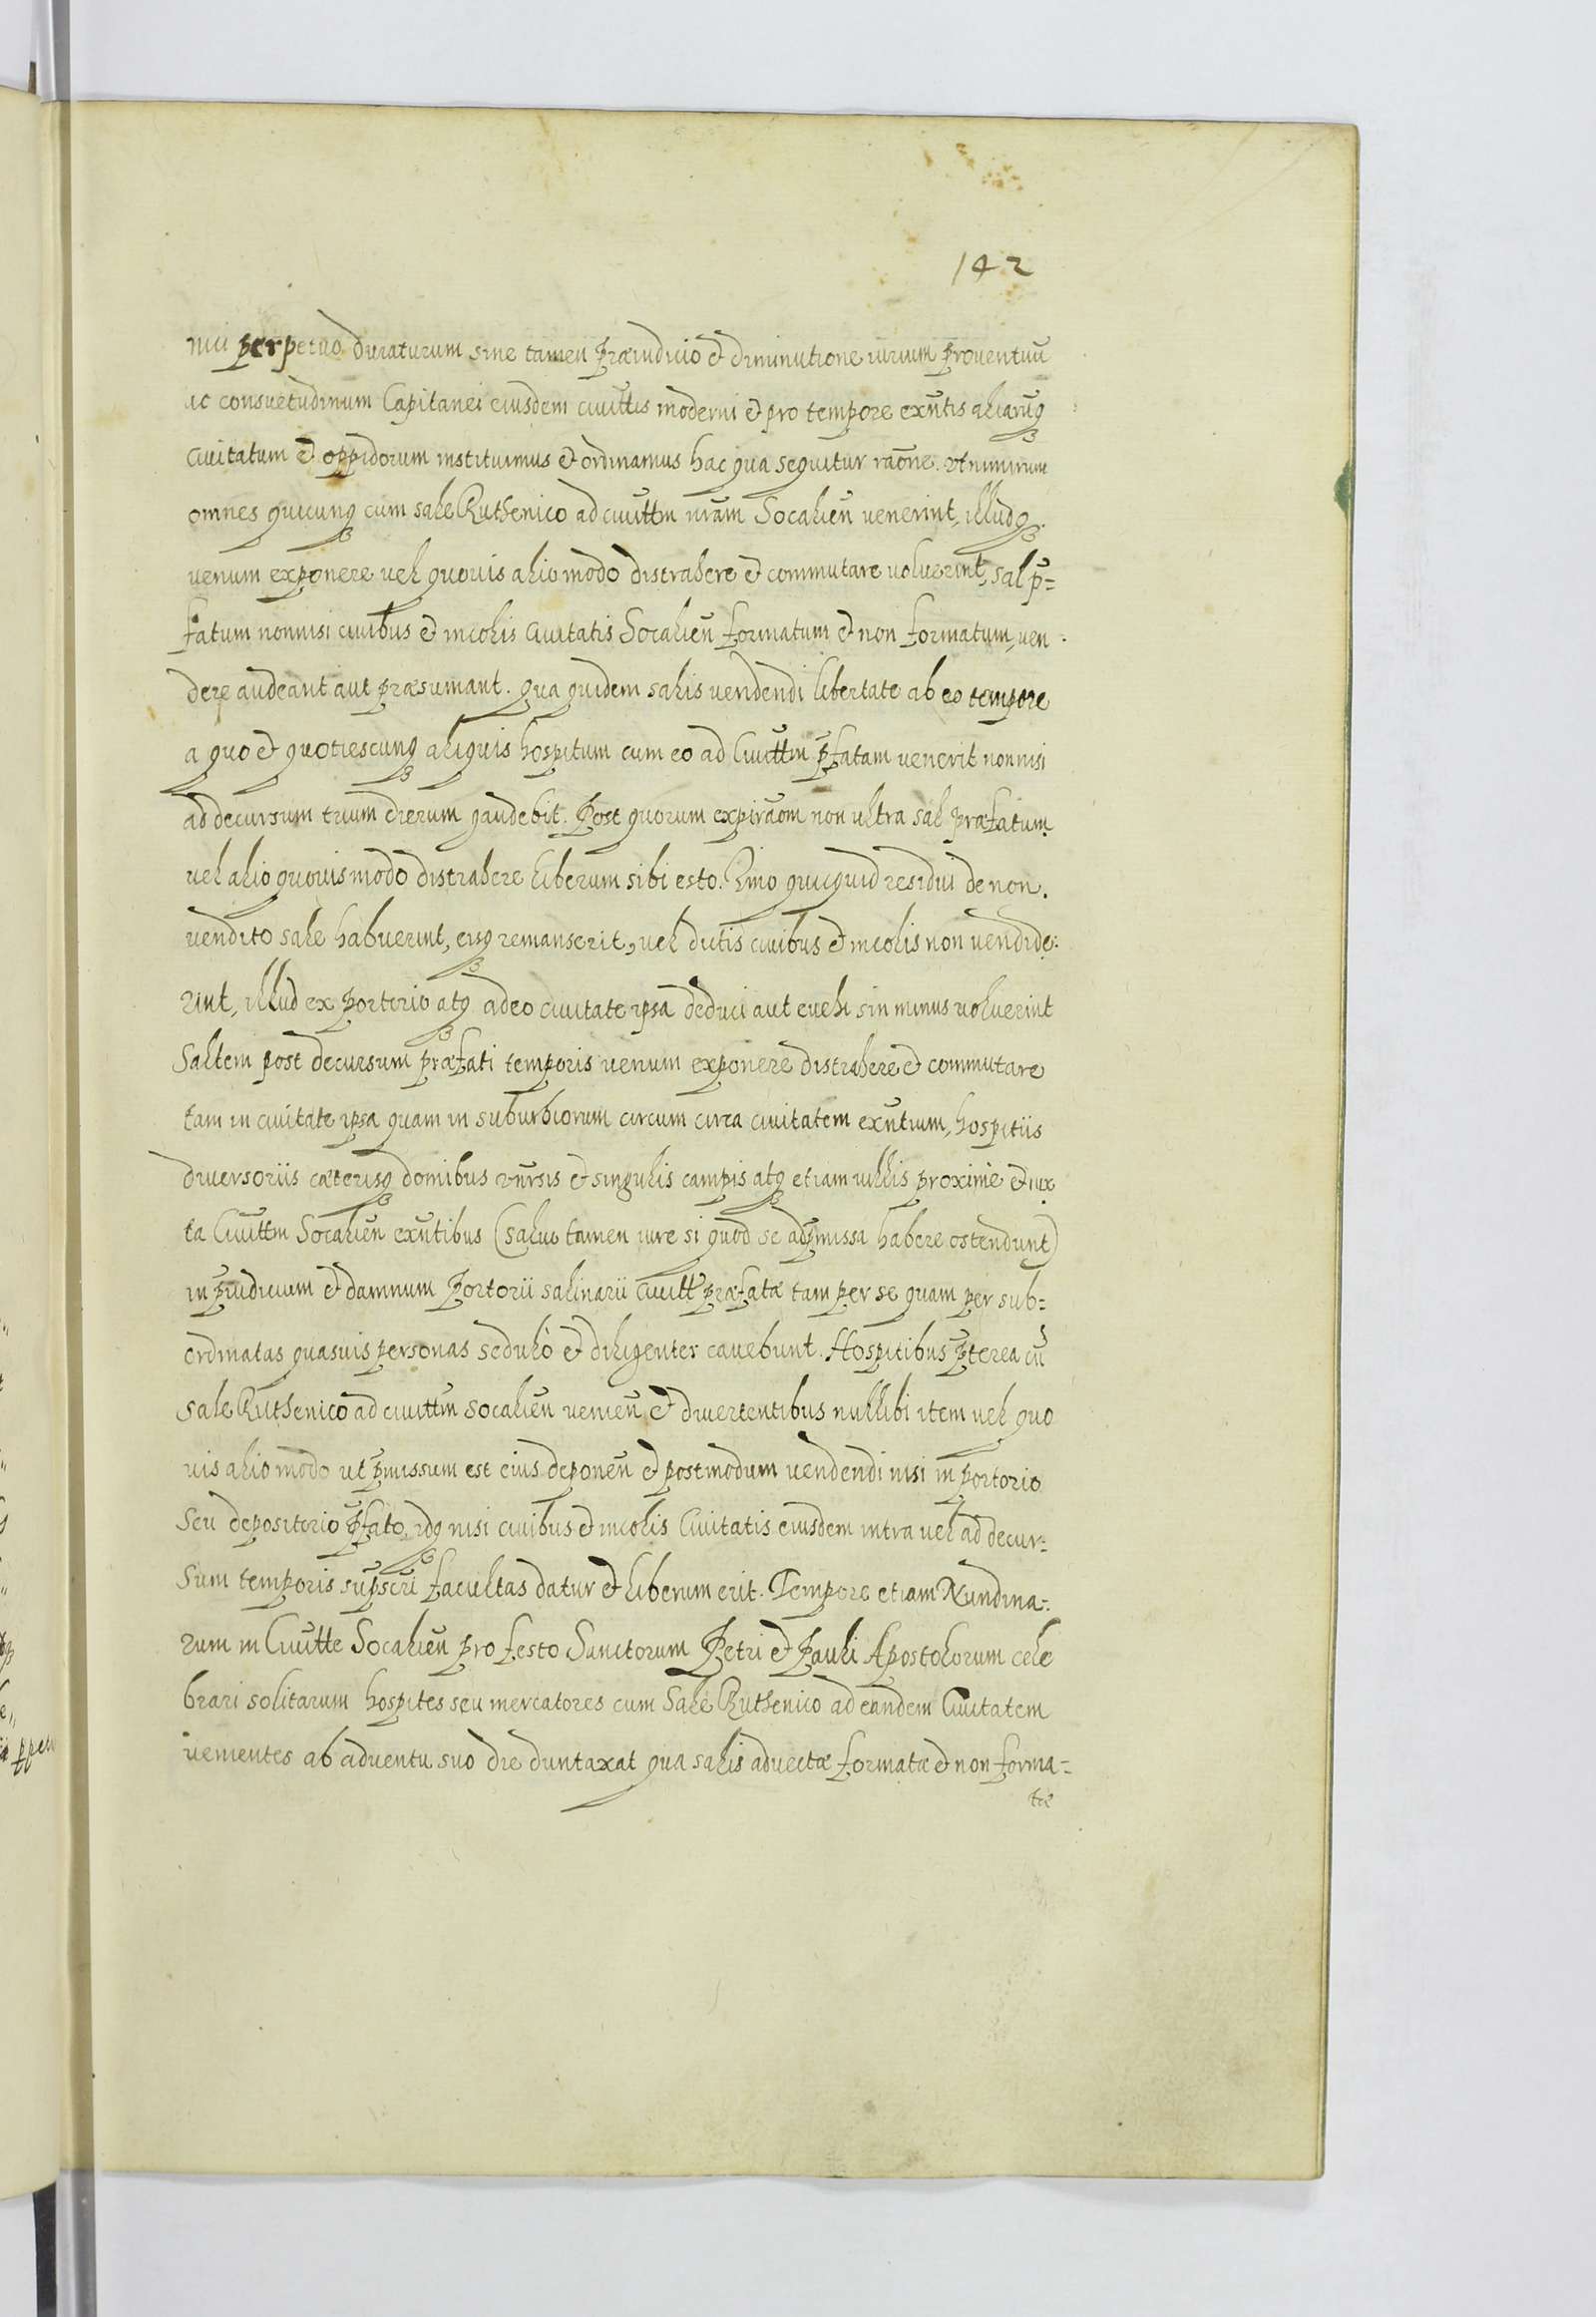 142
nui perpetuo duraturum sine tamen præiudicio et diminutione iurium proventuũ
ac consuetudinum Capitanei eiusdem ciuittis moderni et pro tempore exñtis aliarũq
Ciuitatum et oppidorum instituimus et ordinamus hac qua sequitur raõne. Vt nimirum
omnes quicunq cum sale Ruthenico ad ciuittm nr̃am Socalieñ venerint, illudq
venum exponere vel quovis alio modo distrahere et commutare voluerint, sal p̃=
fatum nonnisi ciuibus et incolis Ciuitatis Socalieñ formatum et non formatum, ven
dere audeant aut præsumant. Qua quidem salis vendendi libertate ab eo tempore
a quo et quotiescunq aliquis hospitum cum eo ad Ciuittm p̃fatam venerit nonnisi
ad decursum trium dierum gaudebit. Post quorum expiraõm non ultra sal præfatum
vel alio quovis modo distrahere liberum sibi esto. Imo quicquid residui de non
vendito sale habuerint, eisq remanserit, vel dictis ciuibus et incolis non vendide:
rint, illud ex portorio atq adeo ciuitate ipsa deduci aut evehi sin minus voluerint
Saltem post decursum præfati temporis venum exponere distrahere et commutare
tam in ciuitate ipsa quam in suburbiorum circum circa ciuitatem exñtium, hospitiis
diversoriis cæterisq domibus vñrsis et singulis campis atq etiam villis proximè et iux
ta Ciuittm Socalieñ exñtibus (salvo tamen iure si quod se ad p̃missa habere ostendunt)
in p̃iudicium et damnum Portorii salinarii Ciuitt præfatæ tam per se quam per sub=
ordinatas quasvis personas sedulò et diligenter cavebunt. Hospitibus p̃terea cũ
sale Ruthenico ad ciuittm Socalieñ venieñ et divertentibus nullibi item vel quo
vis alio modo ut p̃missum est eius deponeñ et postmodum vendendi nisi in portorio
seu depositorio p̃fato, idq nisi ciuibus et incolis Ciuitatis eiusdem intra vel ad decur=
sum temporis sup̃scri facultas datur et liberum erit. Tempore etiam Nundina:
rum in Ciuitte Socalieñ pro festo Sanctorum Petri et Pauli Apostolorum cele
brari solitarum hospites seu mercatores cum Sale Ruthenico ad eandem Ciuitatem
venientes ab adventu suo die duntaxat qua salis advectæ formatæ et non forma=
tæ